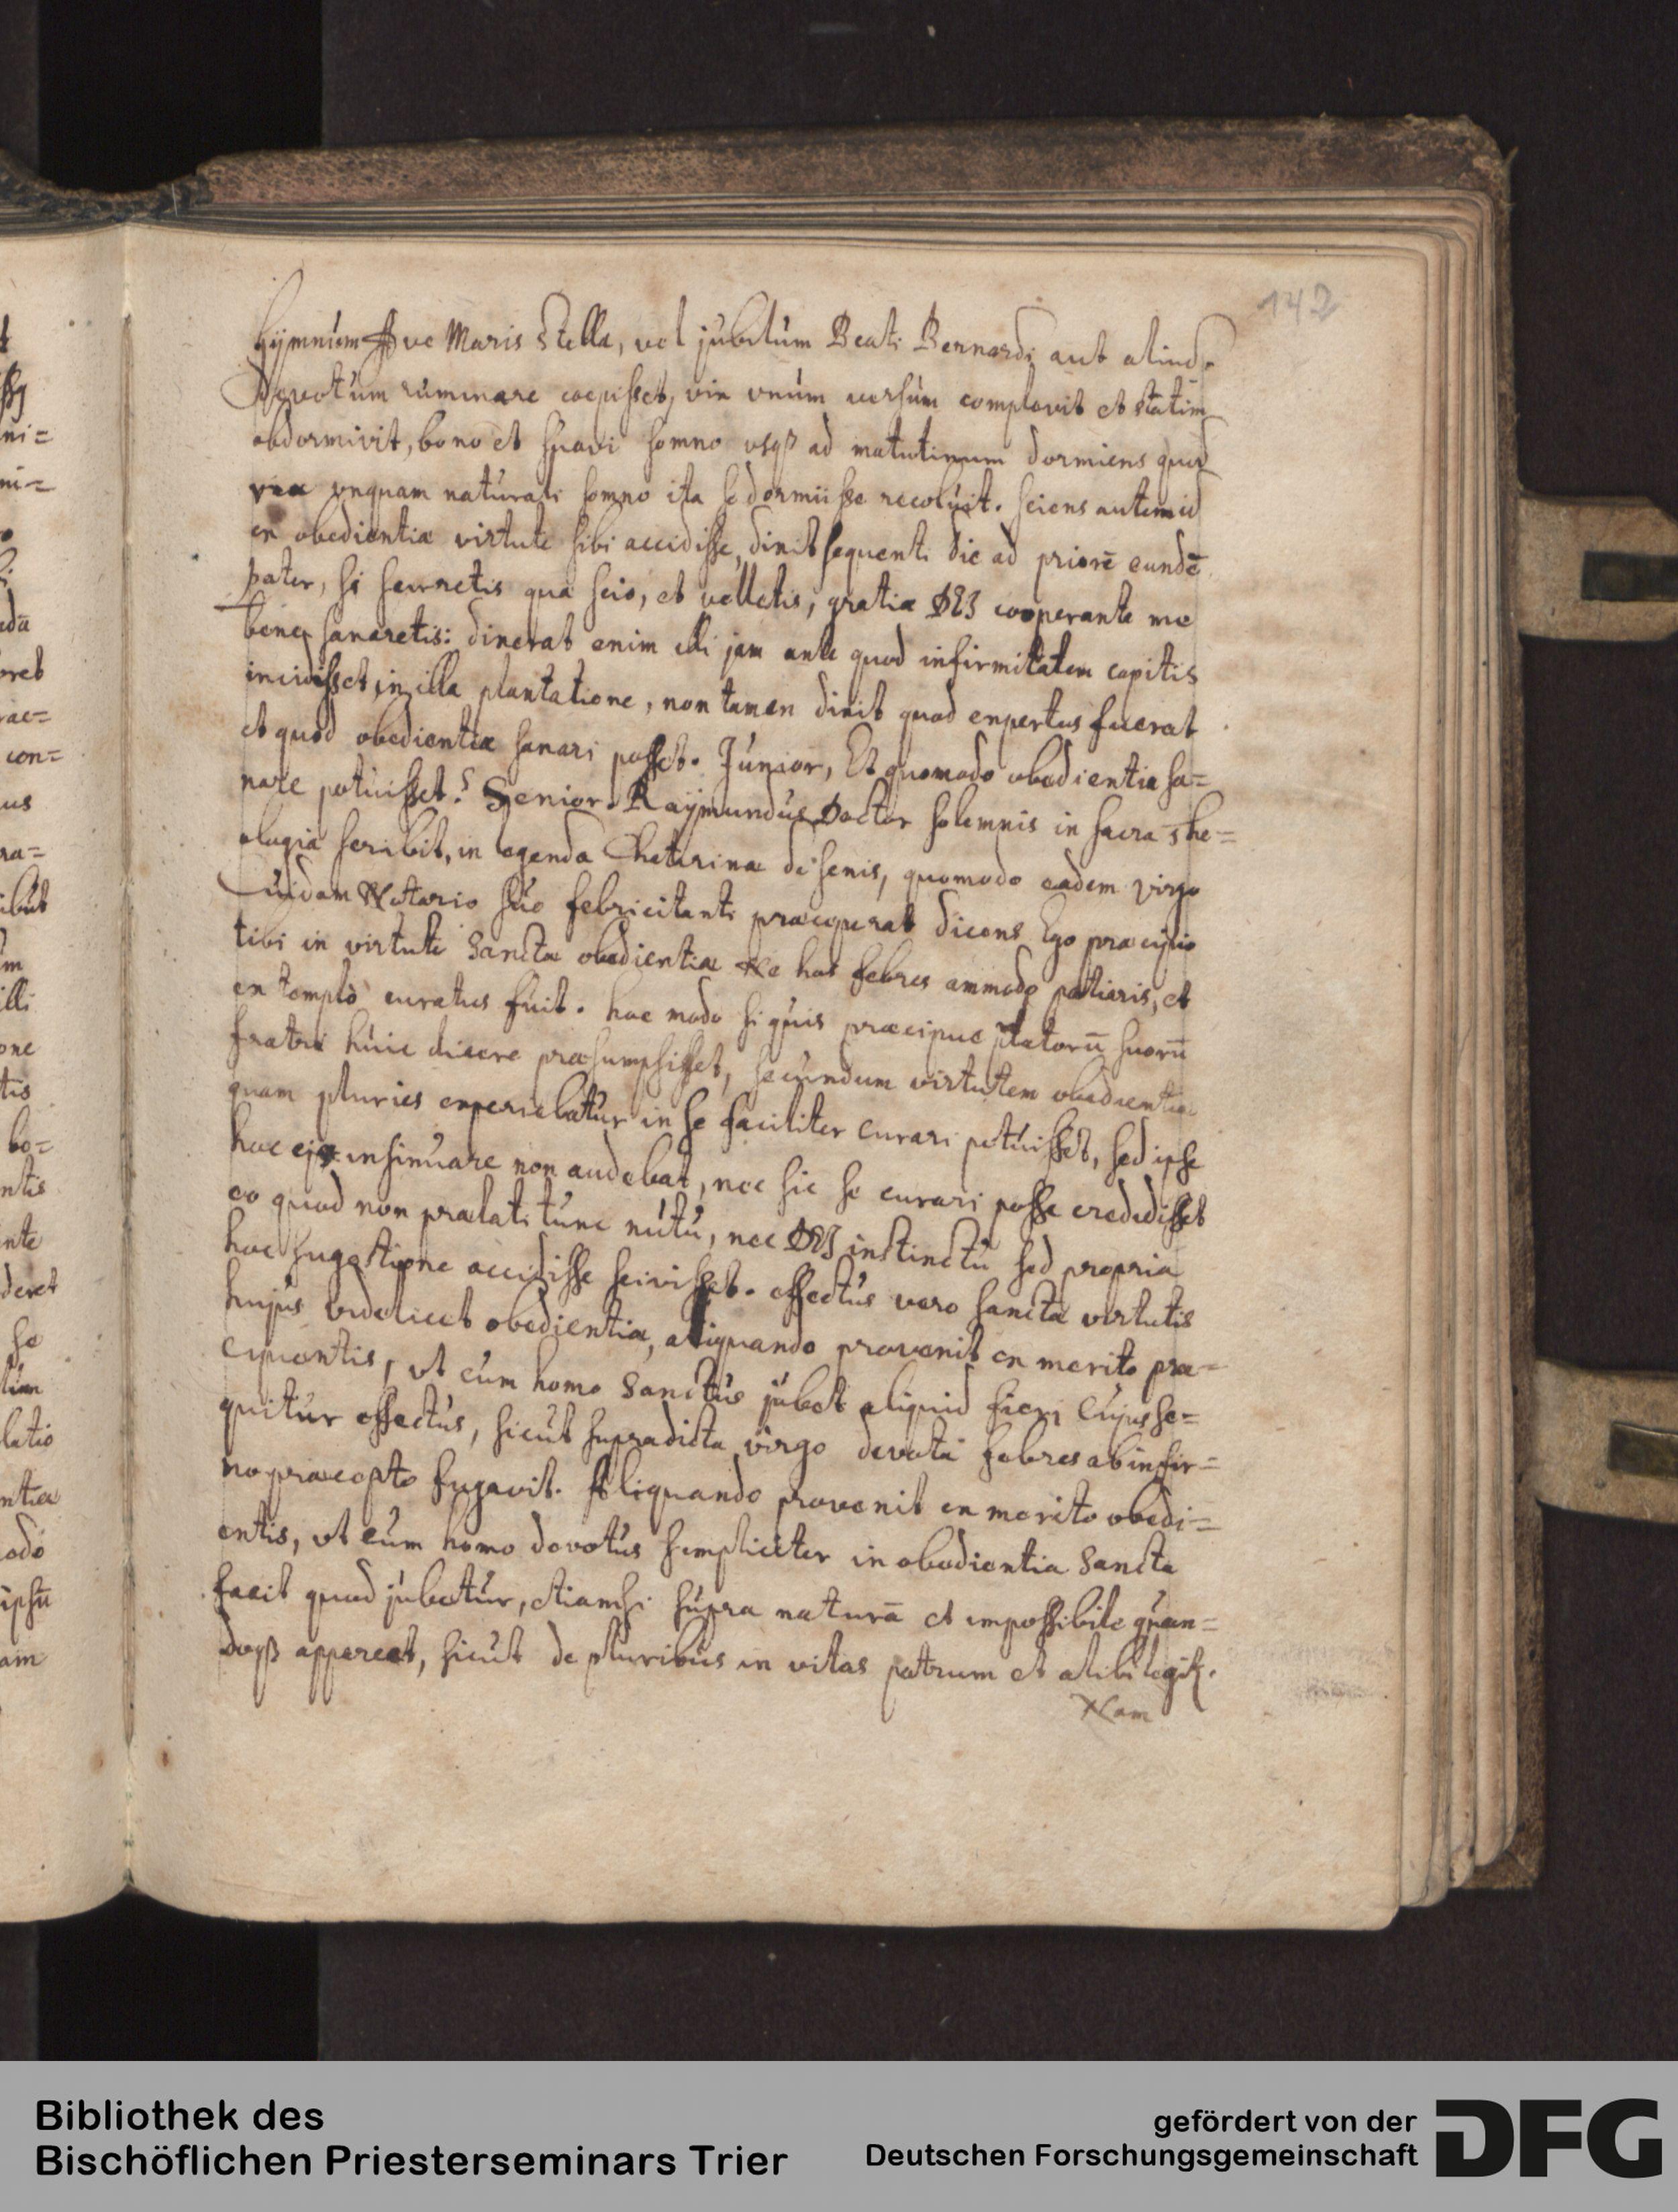 142
hÿmnúm Ave Maris Stella, vel jubilúm Beati Bernardi aut aliud
devotúm rúminare coepisset, vix vnúm versúm complevit et statim
obdormivit, bono et suavi somno vsqꝫ ad matutinum dormiens quod
vix vnquam naturali somno ita se dormiisse recoluit. sciens autem id
ex obedientiæ virtute sibi accidisse, dixit sequenti die ad priorē eundē
pater, si scirretis quæ scio, et velletis, gratiæ DEI cooperante me
bene sanaretis: dixerat enim illi jam ante quod infirmitatem capitis
incidisset in illa plantatione, non tamen dixit quod expertus fuerat
et quod obedientiæ sanari posset. Júnior, Et quomodo obedientia sa=
nare potúisset? Senior. Raÿmundús Doctor solemnis in sacra The=
ologia scribit, in legenda Chatarinæ de senis, quomodo eadem virgo
Cúidam Notario súo febricitanti præceperat dicens Ego præcipio
tibi in virtute Sanctæ obedientiæ Ne has febres ammodo patiaris, et
extemplò curatus fúit. hoc modo si qúis præcipue platorū suorū
fratri húic dicere præsumpsisset, secúndum virtutem obedientiæ
quam pluries experiebatúr in se faciliter curari potúisset, sed ipse
hoc eis insinúare non audebat, nec sic se curari posse credidisset
eo quod non prælati túnc nútú, nec DEI instinctú sed propria
hoc sugestione accidisse scivisset. effectús vero sanctæ virtutis
hujús videlicet obedientiæ, aliquando provenit ex merito præ=
cipientis, vt cúm homo Sanctús júbet aliquid fieri Cújus se=
quitúr effectús, sicút supradicta virgo devota febres ab infir=
mo præcepto fugavit. Aliquando provenit ex merito obedi=
entis, vt cúm homo devotús simpliciter in obedientia Sancta
facit quod júbetúr, etiamsi súpra naturā et impossibile qúan=
doqꝫ appereat, sicút de pluribús in vitas patrum et alibi legit.
Nam
Bibliothek des
Bischöflichen Priesterseminars Trier
gefördert von der
Deutschen Forschungsgemeinschaft
DFG